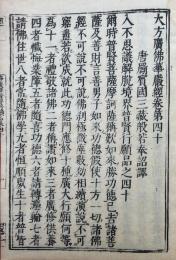 大方廣佛華嚴經卷第四十
唐罽賓國三藏般若奉詔譯
入不思議解脫境界普賢行願品之四十
爾時普賢菩薩摩訶薩稱歎如來勝功德已告諸菩
薩及善財言善男子如來功德假使十方一切諸佛
經不可說不可說佛刹極微塵數劫相續演說不可
窮盡若欲成就此功德門應修十種廣大行願何等
為十一者禮敬諸佛二者稱讚如來三者廣修供養
四者懺悔業障五者隨喜功德六者請轉法輪七者
請佛住世八者常隨佛學九者恒順眾生十者普皆